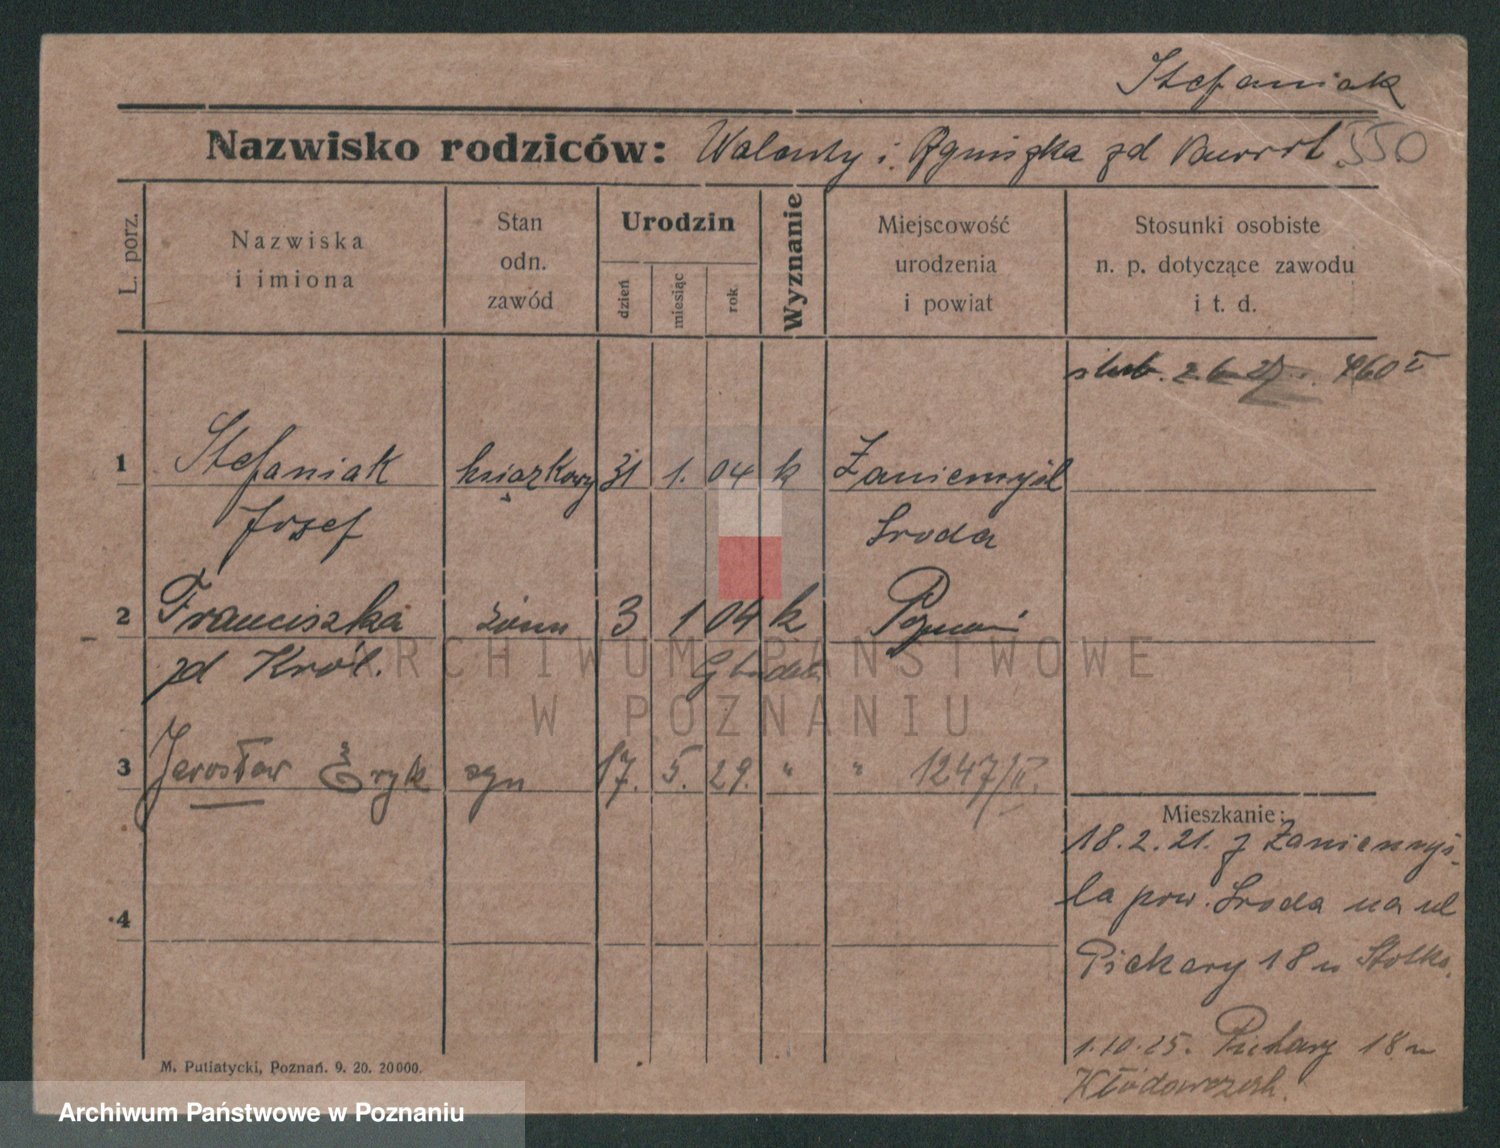 Stefaniak
Nazwisko rodziców: Walenty i Agnieszka zd 550
L. porz.
Nazwiska i imiona
Stan odn. zawód
Urodzin
dzień
miesiąc
rok
Wyznanie
Miejscowość urodzenia i powiat
Stosunki osobiste n. p. dotyczące zawodu i t. d.
ślub. 2.6. 27 760 V
1 Stefaniak książkowy 31 1. 04 k Zaniemyśl
Jozef Sroda
2 Franciszka żona 3 1 04 k Poznań
zd Król.
ARCHIWUM PAŃSTWOWE
W POZNANIU
3 Jarosław Eryk syn 17. 5. 29. " " 1247/II.
4
Mieszkanie:
18.2.21. z Zaniemyś-
la pow. Sroda na ul
Piekary 18 u Stolka.
1.10.25. Piekary 18 u
M. Putiatycki, Poznań. 9. 20. 20000.
Archiwum Państwowe w Poznaniu